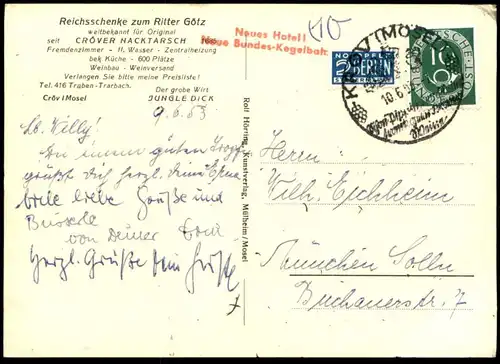 Reichsschenke zum Ritter Götz
weltbekannt für Original
seit CRÖVER NACKTARSCH 1685
Fremdenzimmer - fl. Wasser - Zentralheizung
bek. Küche - 600 Plätze
Weinbau - Weinversand
Verlangen Sie bitte meine Preisliste!
Tel. 416 Traben-Trarbach. Der grobe Wirt
Cröv/Mosel JUNGLE DICK
Neues Hotel!
Neue Bundes-Kegelbahn
NOTOPFER
2 BERLIN
STEUERMARKE
KRÖV (MOSEL)
10.6.
10
DEUTSCHE BUNDESPOST
9.6.53
Lb. Willy!
In einem guten
grüßt dich herzl. Deine Erna
liebe Grüße und
von Deiner
Herzl. Grüße
Rolf Hörting, Kunstverlag, Mülheim/Mosel
Herrn
Wilh. Eichheim
München Solln
Buchauerstr. 7